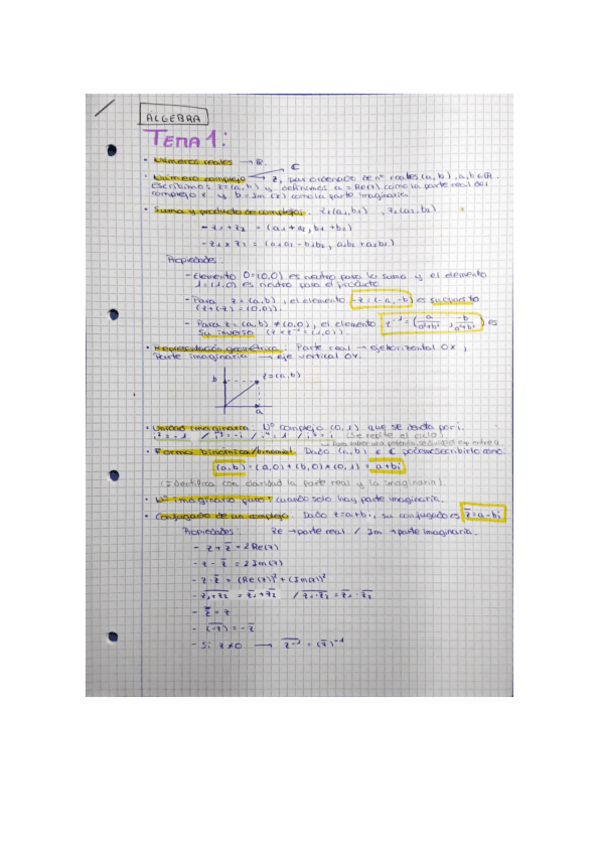 ÁLGEBRA
TEMA 1:
• Números reales → ℝ.
ℂ
• Número complejo → z, par ordenado de nº reales (a, b), a, b ∈ ℝ.
Escribimos: z = (a, b) y definimos a = Re(z) como la parte real del
complejo z y b = Im (z) como la parte imaginaria.
• Suma y producto de complejos: z₁(a₁, b₁) , z₂(a₂, b₂)
- z₁ + z₂ = (a₁ + a₂, b₁ + b₂)
- z₁ × z₂ = (a₁a₂ - b₁b₂, a₁b₂ + a₂b₁)
Propiedades:
- Elemento 0 = (0,0) es neutro para la suma y el elemento
1 = (1,0) es neutro para el producto.
- Para z = (a, b), el elemento -z = (-a, -b) es su opuesto
(z + (-z) = (0,0)).
- Para z = (a, b) ≠ (0,0), el elemento z⁻¹ = (a/(a²+b²), -b/(a²+b²)) es
su inverso (z × z⁻¹ = (1,0)).
• Representación geométrica: Parte real → eje horizontal OX,
Parte imaginaria → eje vertical OY.
b z = (a, b)
a
• Unidad imaginaria: Nº complejo (0, 1) que se denota por i.
(se repite el ciclo)
• Forma binómica/binomial: Dado (a, b) ∈ ℂ podemos escribirlo como:
(a, b) = (a, 0) + (b, 0) × (0, 1) = a + bi
(Identifica con claridad la parte real y la imaginaria).
• Nº imaginario puro: cuando solo hay parte imaginaria.
• Conjugado de un complejo: Dado z = a + bi, su conjugado es z̅ = a - bi
Propiedades: Re → parte real / Im → parte imaginaria.
- z + z̅ = 2 Re(z)
- z - z̅ = 2 Im(z)
- z · z̅ = (Re(z))² + (Im(z))²
- z̅₁̅ ̅+̅ ̅z̅₂̅ = z̅₁ + z̅₂ / z̅₁̅ ̅·̅ ̅z̅₂̅ = z̅₁ · z̅₂
- z̿ = z
- (̅-̅z̅)̅ = - z̅
- Si z ≠ 0 → z̅⁻̅¹̅ = (z̅)⁻¹